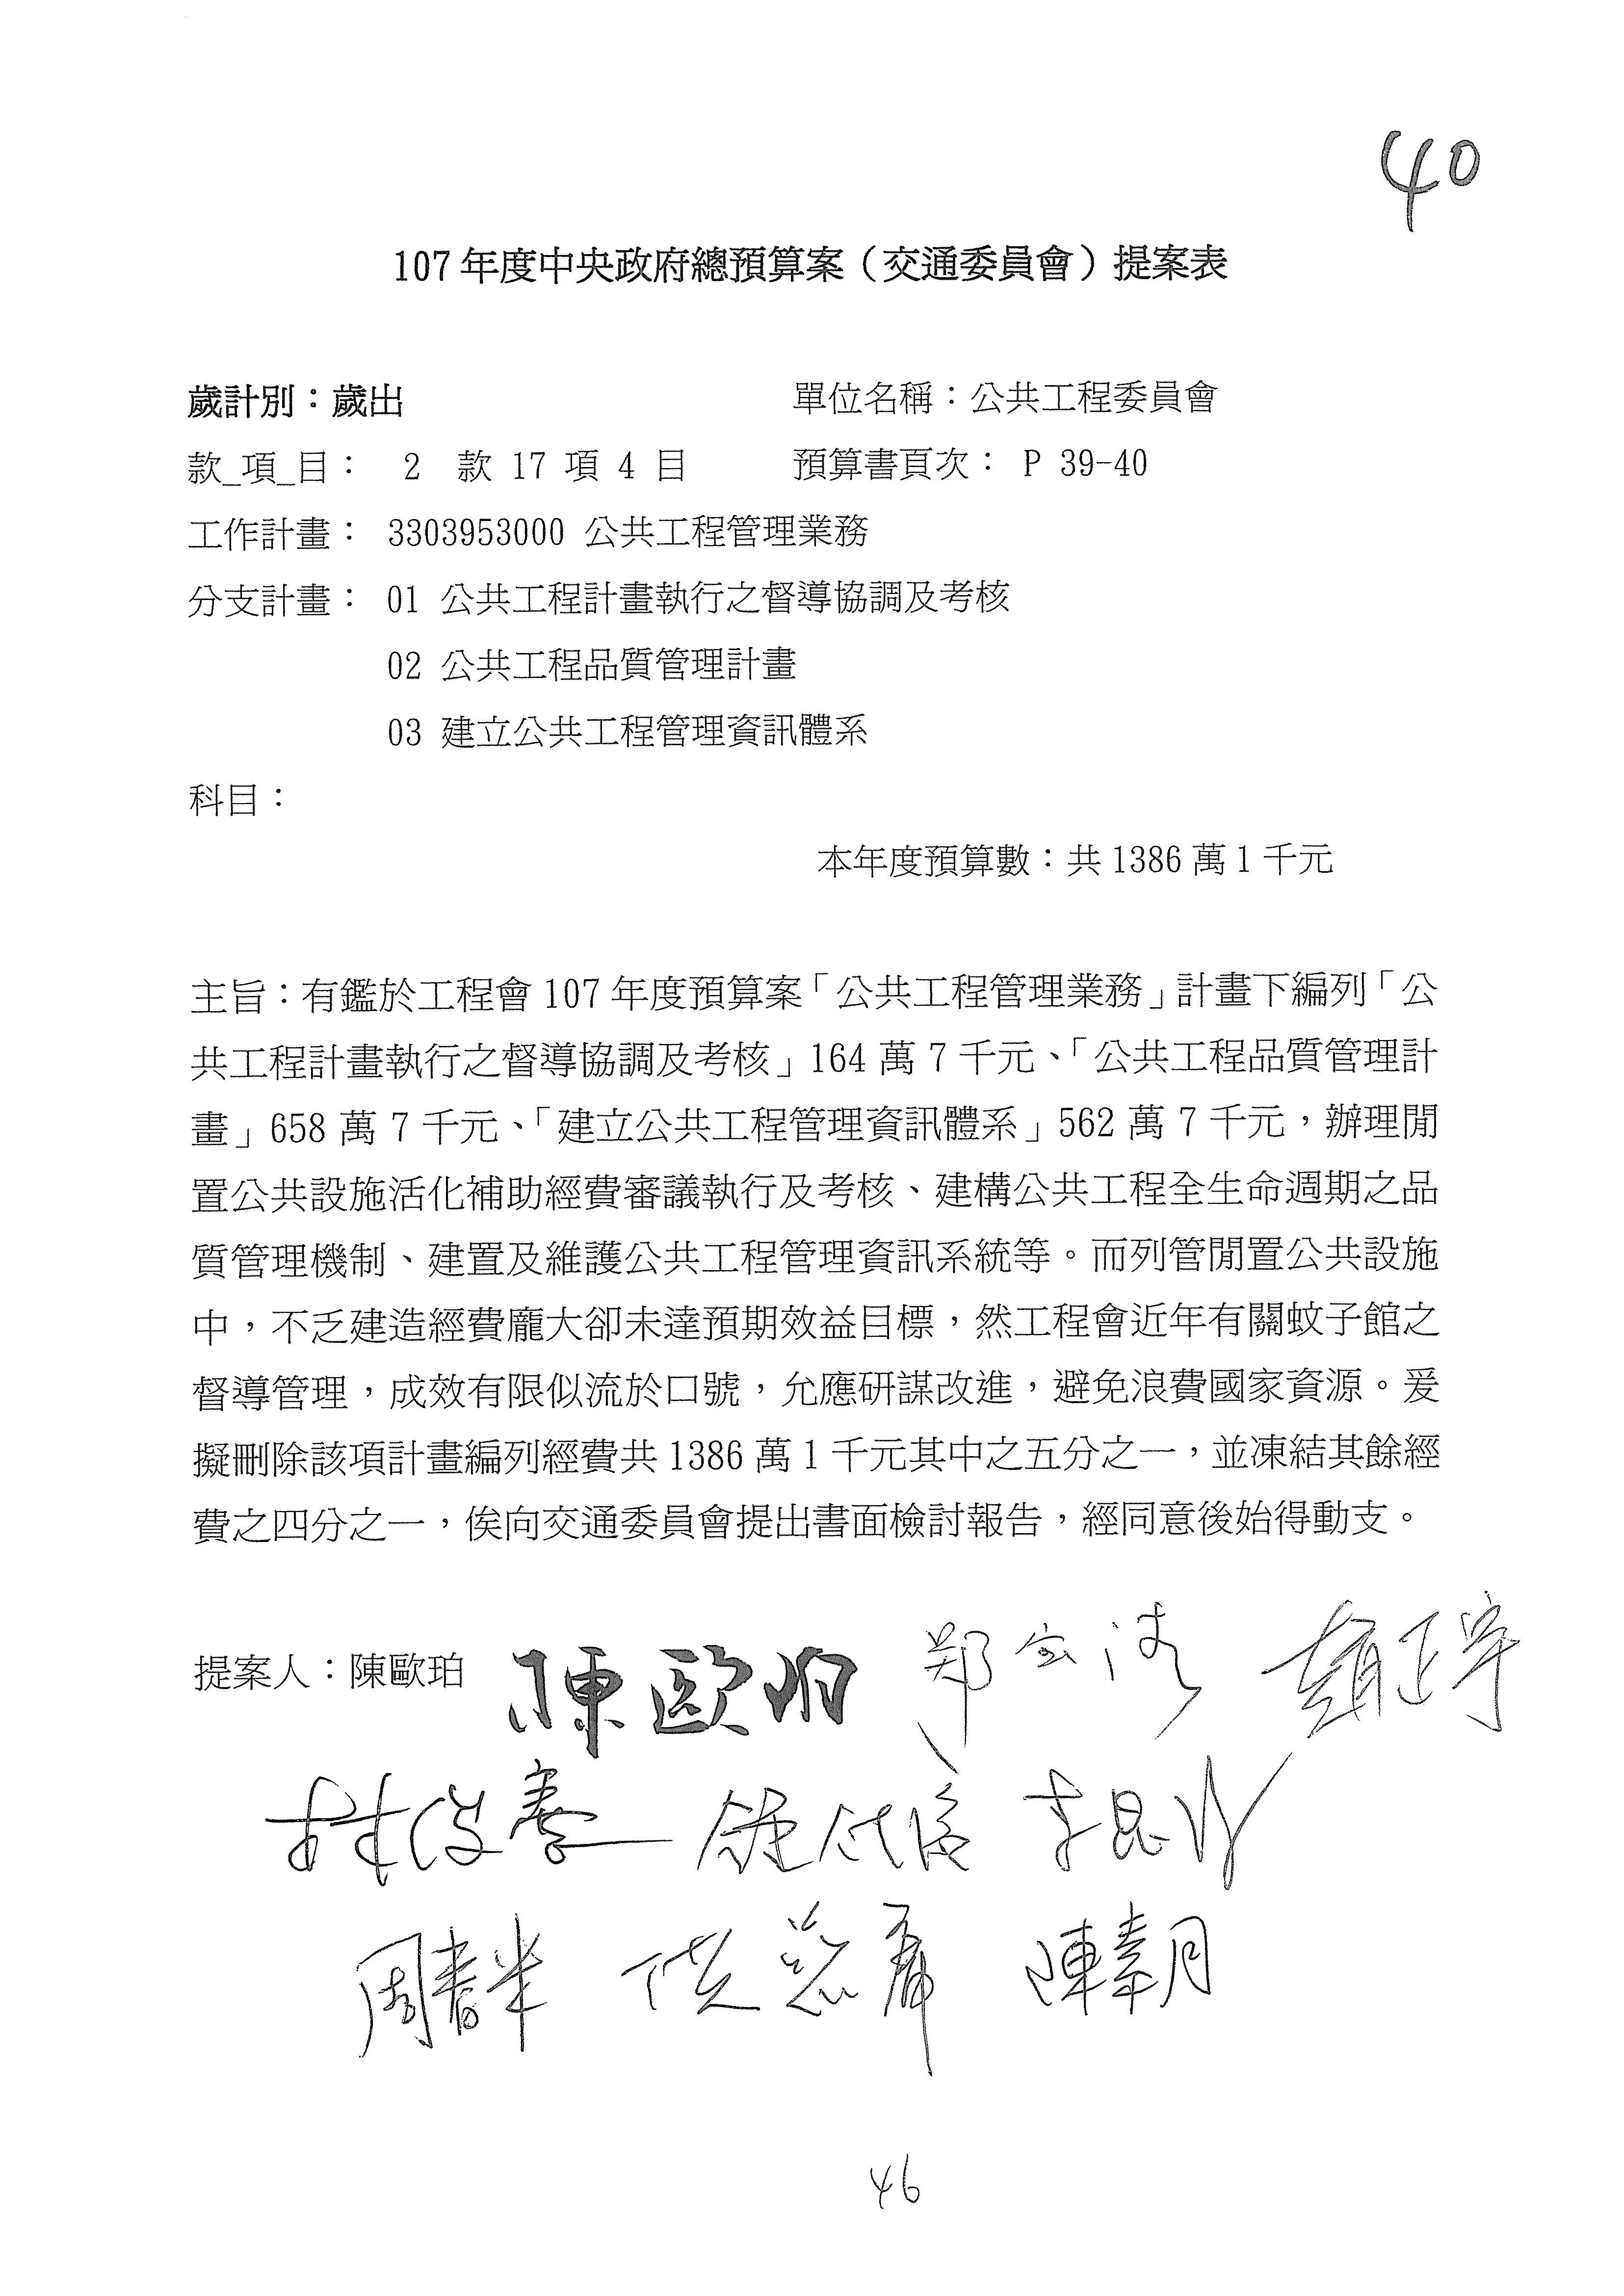 40
107年度中央政府總預算案（交通委員會）提案表
歲計別：歲出 單位名稱：公共工程委員會
款_項_目： 2 款 17 項 4 目 預算書頁次： P 39-40
工作計畫： 3303953000 公共工程管理業務
分支計畫： 01 公共工程計畫執行之督導協調及考核
02 公共工程品質管理計畫
03 建立公共工程管理資訊體系
科目：
本年度預算數：共1386萬1千元
主旨：有鑑於工程會107年度預算案「公共工程管理業務」計畫下編列「公
共工程計畫執行之督導協調及考核」164萬7千元、「公共工程品質管理計
畫」658萬7千元、「建立公共工程管理資訊體系」562萬7千元，辦理閒
置公共設施活化補助經費審議執行及考核、建構公共工程全生命週期之品
質管理機制、建置及維護公共工程管理資訊系統等。而列管閒置公共設施
中，不乏建造經費龐大卻未達預期效益目標，然工程會近年有關蚊子館之
督導管理，成效有限似流於口號，允應研謀改進，避免浪費國家資源。爰
擬刪除該項計畫編列經費共1386萬1千元其中之五分之一，並凍結其餘經
費之四分之一，俟向交通委員會提出書面檢討報告，經同意後始得動支。
提案人：陳歐珀 陳歐珀 鄭宝清 趙正宇
林俊憲 鍾佳濱 李昆澤
周春米 洪慈庸 陳素月
46